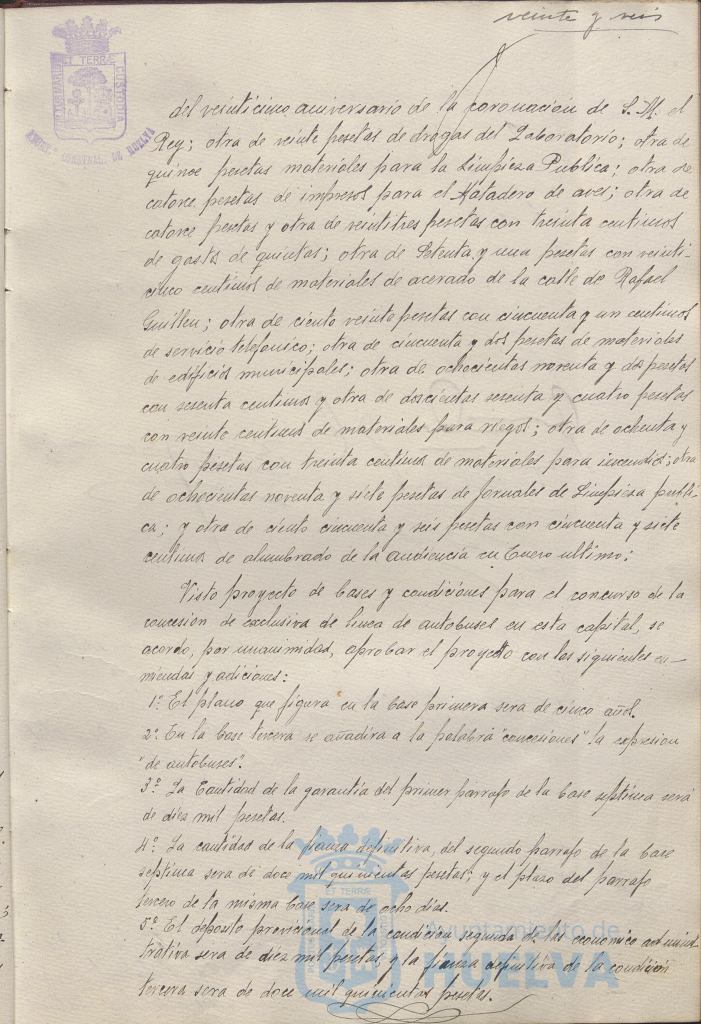 veinte y seis
ET TERRÆ
PORTUS MARIS
CUSTODIA
AYUNT. CONSTNAL. DE HUELVA
del veinticinco aniversario de la coronacion de S. M. el
Rey; otra de veinte pesetas de drogas del Laboratorio; otra de
quince pesetas materiales para la Limpieza Publica; otra de
catorce pesetas de impresos para el Matadero de aves; otra de
catorce pesetas y otra de veintitres pesetas con treinta centimos
de gastos de quintas; otra de Setenta y una pesetas con veinti-
cinco centimos de materiales de acerado de la calle de Rafael
Guillen; otra de ciento veinte pesetas con cincuenta y un centimos
de servicio telefonico; otra de cincuenta y dos pesetas de materiales
de edificios municipales; otra de ochocientas noventa y dos pesetas
con sesenta centimos y otra de doscientas sesenta y cuatro pesetas
con veinte centimos de materiales para riegos; otra de ochenta y
cuatro pesetas con treinta centimos de materiales para incendios; otra
de ochocientas noventa y siete pesetas de jornales de Limpieza publi-
ca; y otra de ciento cincuenta y seis pesetas con cincuenta y siete
centimos de alumbrado de la audiencia en Enero ultimo;
Visto proyecto de bases y condiciones para el concurso de la
concesion de exclusiva de linea de autobuses en esta capital, se
acordo, por unanimidad, aprobar el proyecto con las siguientes en-
miendas y adiciones:
1ª El plano que figura en la base primera sera de cinco años.
2ª En la base tercera se añadira a la palabra "concesiones" la expresion
"de autobuses".
3ª La Cantidad de la garantia del primer parrafo de la base septima será
de diez mil pesetas.
4ª La cantidad de la fianza definitiva, del segundo parrafo de la base
septima sera de doce mil quinientas pesetas; y el plazo del parrafo
tercero de la misma base sera de ocho dias.
5ª El deposito provisional de la condicion segunda de las economico adminis
trativa sera de diez mil pesetas y la fianza definitiva de la condicion
tercera sera de doce mil quinientas pesetas.
ET TERRÆ
Ayuntamiento de
HUELVA